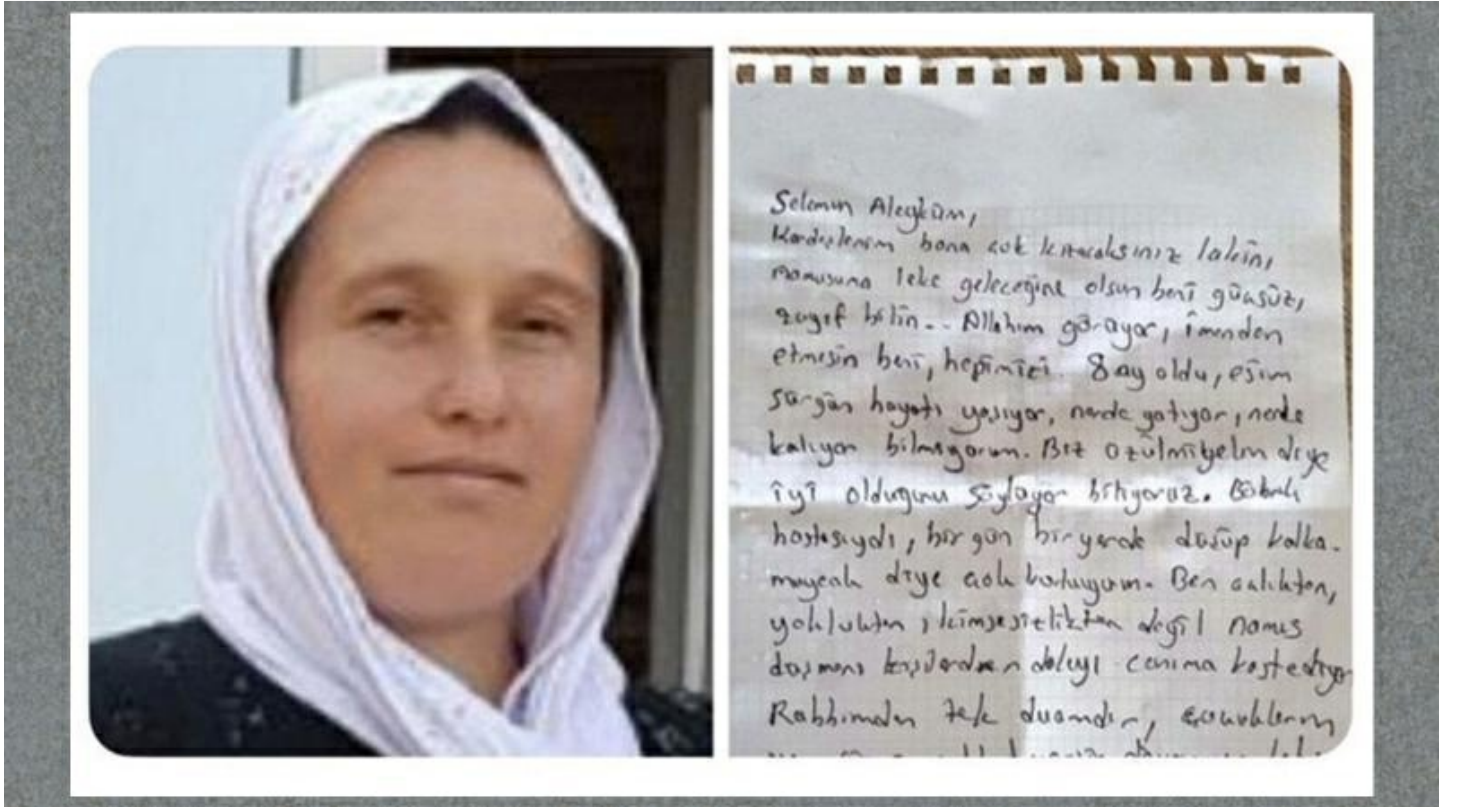 Selamun Aleyküm,
Kardeşlerim bana çok kızacaksınız lakin,
namusuma leke geleceğine olsun beni güçsüz,
zayıf bilin.. Allahım görüyor, imandan
etmesin beni, hepimizi. 8 ay oldu, eşim
sürgün hayatı yaşıyor, nerde yatıyor, nerde
kalıyor bilmiyorum. Biz üzülmiyelim diye
iyi olduğunu söylüyor biliyoruz. Böbrek
hastasıydı, bir gün bir yerde düşüp kalka-
mayacak diye çok korkuyorum. Ben açlıktan,
yokluktan, kimsesizlikten değil namus
düşmanı kişilerden dolayı canıma kastediyor
Rabbimden tek duamdır, çocuklarım